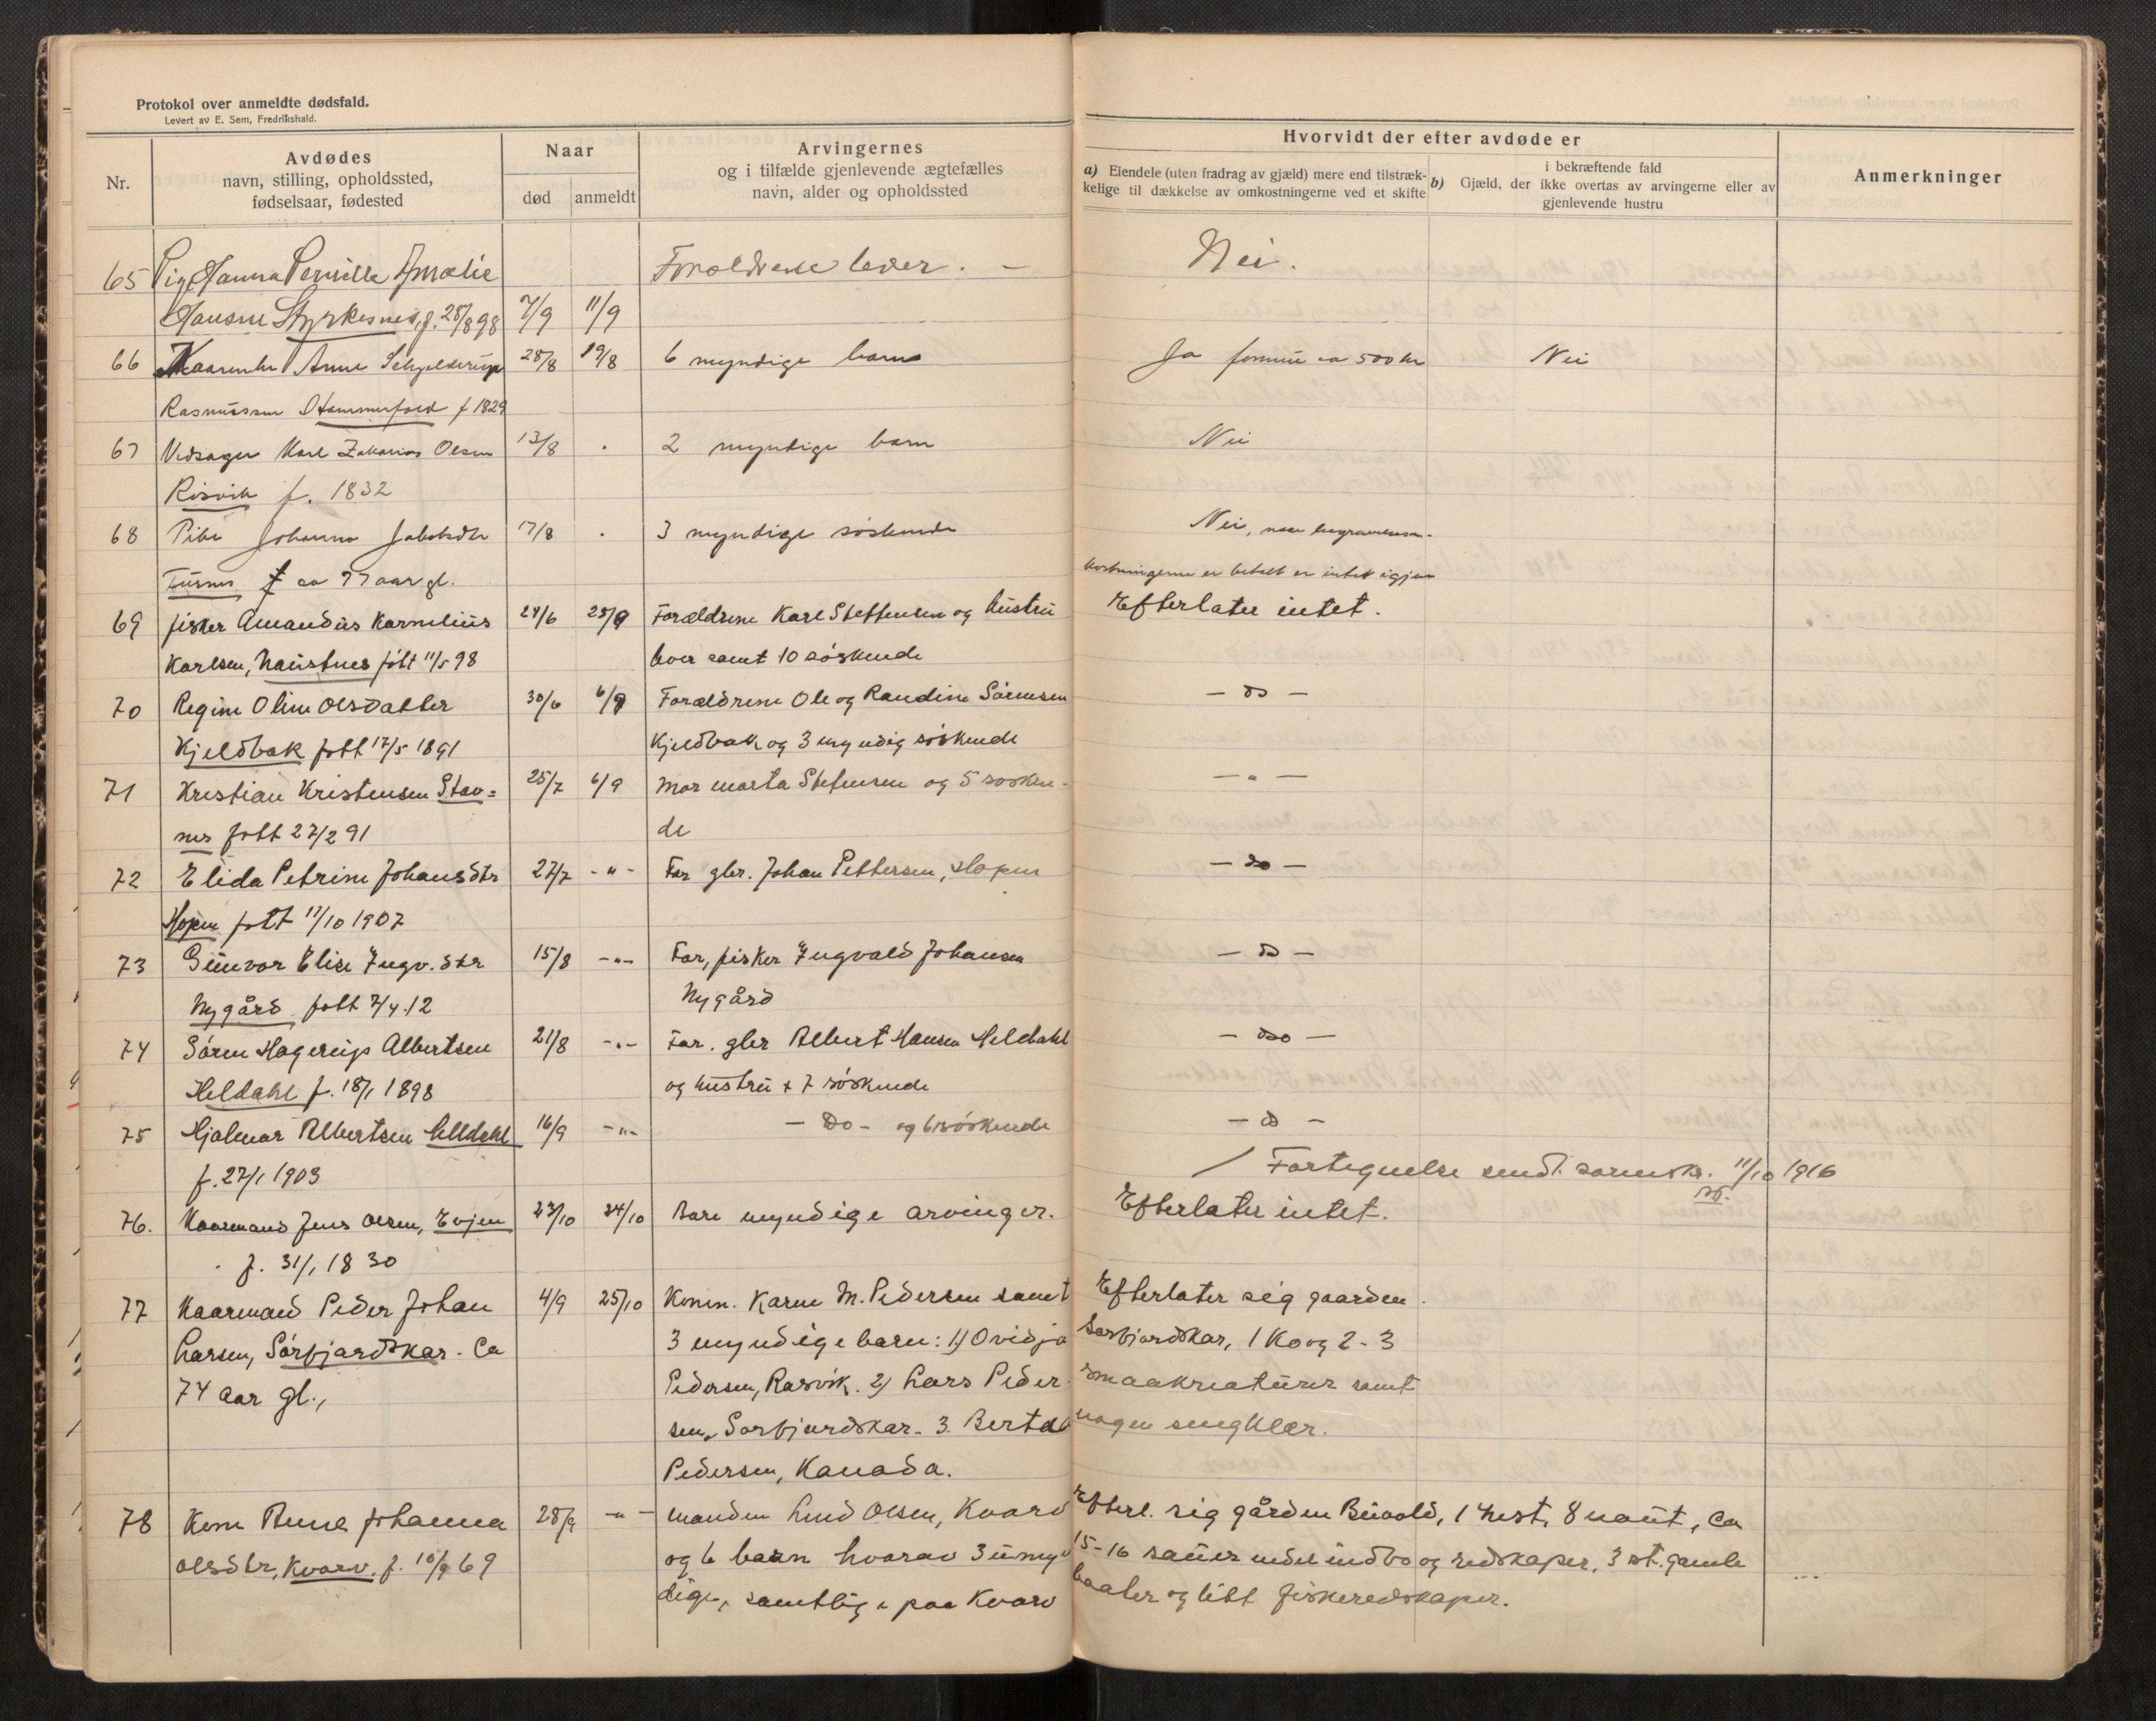 Protokol over anmeldte dødsfald.
Levert av E. Sem, Fredrikshald.
Nr.
Avdødes
navn, stilling, opholdssted,
fødselsaar, fødested
Naar
død
anmeldt
Arvingernes
og i tilfælde gjenlevende ægtefælles
navn, alder og opholdssted
Hvorvidt der efter avdøde er
a) Eiendele (uten fradrag av gjæld) mere end tilstræk-
kelige til dækkelse av omkostningerne ved et skifte
i bekræftende fald
b) Gjæld, der ikke overtas av arvingerne eller av
gjenlevende hustru
Anmerkninger
65 Pig Hanna Pernille Amalie Forældrene lever. - Nei.
Hansen Styrkesnes, f. 28/8 98 7/9 11/9
66 Kaarenke Anne Schjelderup 28/8 19/8 6 myndige barn Ja formue ca 500 kr Nei
Rasmussen Hammerfald f 1829
67 Vedsager Karl Zakarias Olsen 13/8 . 2 myndige barn Nei
Risvik f. 1832
68 Pike Johanna Jakobsdtr 17/8 . 3 myndige søskende Nei, naar begravelsesom-
Fusnes f ca 77 aar gl. kostningerne er betalt er intet igjen
69 fisker Amandus Kornelius 24/6 25/9 Forældrene Karl Steffensen og hustru Efterlater intet.
Karlsen, Naustnes født 11/5 98 lever samt 10 søskende
70 Regine Oline Olsdatter 30/6 6/9 Forældrene Ole og Randine Sørensen - do -
Kjeldbak født 17/5 1891 Kjeldbak og 3 myndig søskende
71 Kristian Kristensen Stav= 25/7 6/9 Mor Marta Stefensen og 5 søsken- - " -
nes født 27/2 91 de
72 Elida Petrine Johansdtr 27/7 - " - Far gbr. Johan Pettersen, Hopen - do -
Hopen født 11/10 1907
73 Gunvor Elise Ingv.dtr 15/8 - " - Far, fisker Ingvald Johansen - do -
Nygård født 7/4.12 Nygård
74 Sören Hagerup Albertsen 21/8 - " - Far. gbr Albert Hansen Heldahl - do -
Heldahl f. 18/1 1898 og hustru + 7 søskende
75 Hjalmar Albertsen Helldahl 16/9 - " - - Do - og 6 søskende - do -
f. 27/1 1903 / Fortegnelse sendt sorensk. 11/10 1916
76. Kaarmand Jens Olsen, Evjen 23/10 24/10 Bare myndige arvinger. Efterlater intet.
f. 31/1 1830
77 Kaarmand Peder Johan 4/9 25/10 Konen. Karen M. Pedersen samt Efterlater sig gaarden
Larsen, Sörfjordskar. Ca 3 myndige barn: 1) Ovidja Sørfjordskar, 1 Ko og 2-3
74 aar gl., Pedersen, Rasvik. 2) Lars Peder- smaakreaturer samt
sen, Sørfjordskar. 3. Berta nogen sengklær.
Pedersen, Kanada.
78 Kone Anna Johanna 28/9 - " - manden Lind Olsen, Kvarv Efterl. sig gården Buvold, 1 hest, 8 naut, Ca
Olsdtr, Kvarv. f. 10/9 69 og 6 barn hvorav 3 umyn 15-16 sauer endel indbo og redskaper, 3 st. gamle
dige, samtlige paa Kvarv baater og litt fiskeredskaper.